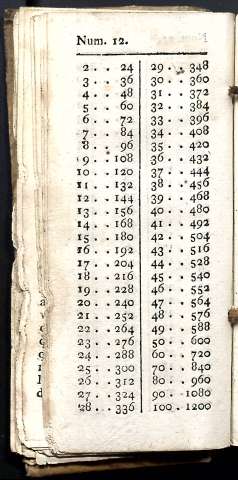 Num. 12.
2 . . 24 29 . . 348
3 . . 36 30 . . 360
4 . . 48 31 . . 372
5 . . 60 32 . . 384
6 . . 72 33 . . 396
7 . . 84 34 . . 408
8 . . 96 35 . . 420
9 . . 108 36 . . 432
10 . . 120 37 . . 444
11 . . 132 38 . . 456
12 . . 144 39 . . 468
13 . . 156 40 . . 480
14 . . 168 41 . . 492
15 . . 180 42 . . 504
16 . . 192 43 . . 516
17 . . 204 44 . . 528
18 . . 216 45 . . 540
19 . . 228 46 . . 552
20 . . 240 47 . . 564
21 . . 252 48 . . 576
22 . . 264 49 . . 588
23 . . 276 50 . . 600
24 . . 288 60 . . 720
25 . . 300 70 . . 840
26 . . 312 80 . . 960
27 . . 324 90 . . 1080
28 . . 336 100 . 1200